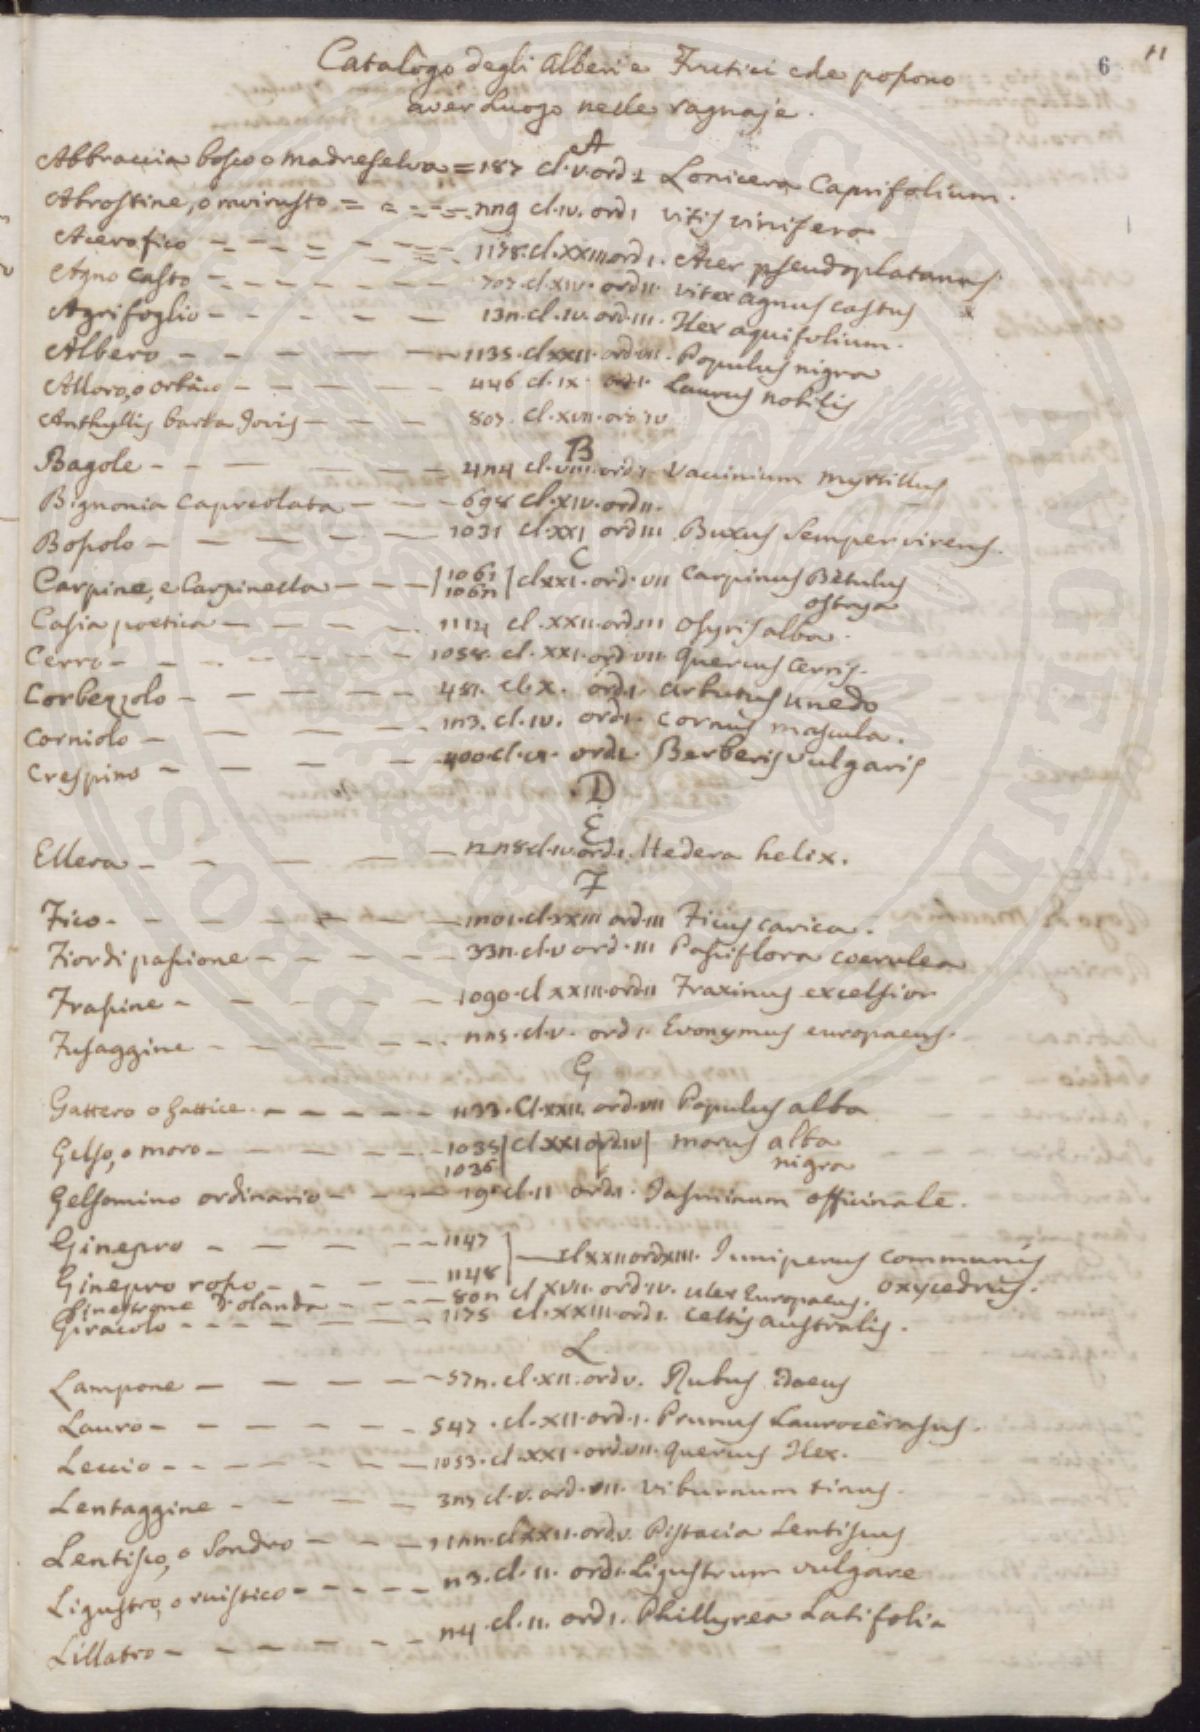 6
11
Catalogo degli Alberi e Frutici che posſono
aver Luogo nelle ragnaje.
A
Abbraccia bosco o Madreselva = 187 cl. v. ord 1 Lonicera Caprifolium.
Abrostine, o cl. iv. ord 1 vitis vinifera
Acero fico 1178. cl. xxiii ord 1. Acer pseudoplatanus.
Agno casto 707. cl. xiv. ord ii. vitex agnus castus
Agrifoglio 12n. cl. iv. ord. iii. Ilex aquifolium.
Albero 1135. cl xxii. ord. vii. Populus nigra
Alloro, o orbaco 446 cl. ix. ord. i. Laurus nobilis
Anthyllis barba Jovis 807. cl. xvii. ord iv
B
Bagole 4n4 cl. viii. ord 1. Vaccinium myrtillus
Bignonia Capreolata 698 cl. xiv. ord ii.
Boſsolo 1031 cl. xxi ord iii Buxus Sempervirens.
C
Carpine, e Carpinella 1061 cl xxi. ord. vii Carpinus Betulus
106n ostrya
Casia poetica 1114 cl. xxii. ord. iii Osyris alba.
Cerro 1058. cl. xxi. ord. vii. Quercus Cerris.
Corbezzolo 487. cl. x. ord. 1. Arbutus Unedo
Corniolo 1n3. cl. iv. ord 1. Cornus mascula.
Crespino 400. cl. vi. ord 1. Berberis vulgaris
D
E
Ellera cl. iv. ord. 1. Hedera helix.
F
Fico 1n01. cl. xxiii ord. iii Ficus carica.
Fior di paſsione 33n. cl. v ord. iii Paſsiflora coerulea
Fraſsine 1090. cl xxiii. ord ii Fraxinus excelsior
Fusaggine nn5. cl. v. ord 1. Evonymus europaeus.
G
Gattero o gattice 1133. Cl. xxii. ord. vii Populus alba
Gelso, o moro 1035 cl xxi ord iv morus alba
1036 nigra
Gelsomino ordinario 19. cl. ii ord 1. Jasminum officinale.
Ginepro 1147
cl xxii ord xiii. Juniperus communis
Ginepro roſso 1148 oxycedrus.
Ginestrone d'olanda 80n cl xvii. ord. iv. Ulex Europaeus.
Giracolo 1175 cl. xxiii. ord 1. Celtis australis.
L
Lampone 57n. cl. xii. ord v. Rubus Idaeus
Lauro 547. cl. xii. ord. 1. Prunus Laurocerasus.
Leccio 1053. cl. xxi. ord. vii. Quercus Ilex.
Lentaggine 3n7 cl. v. ord. iii. Viburnum tinus.
Lentisco, o Sondro 11nn. cl xxii. ord. v. Pistacia Lentiscus
Ligustro, o ruistico n3. cl. ii. ord 1. Ligustrum vulgare
Lillatro n4. cl. ii. ord 1. Phillyrea Latifolia